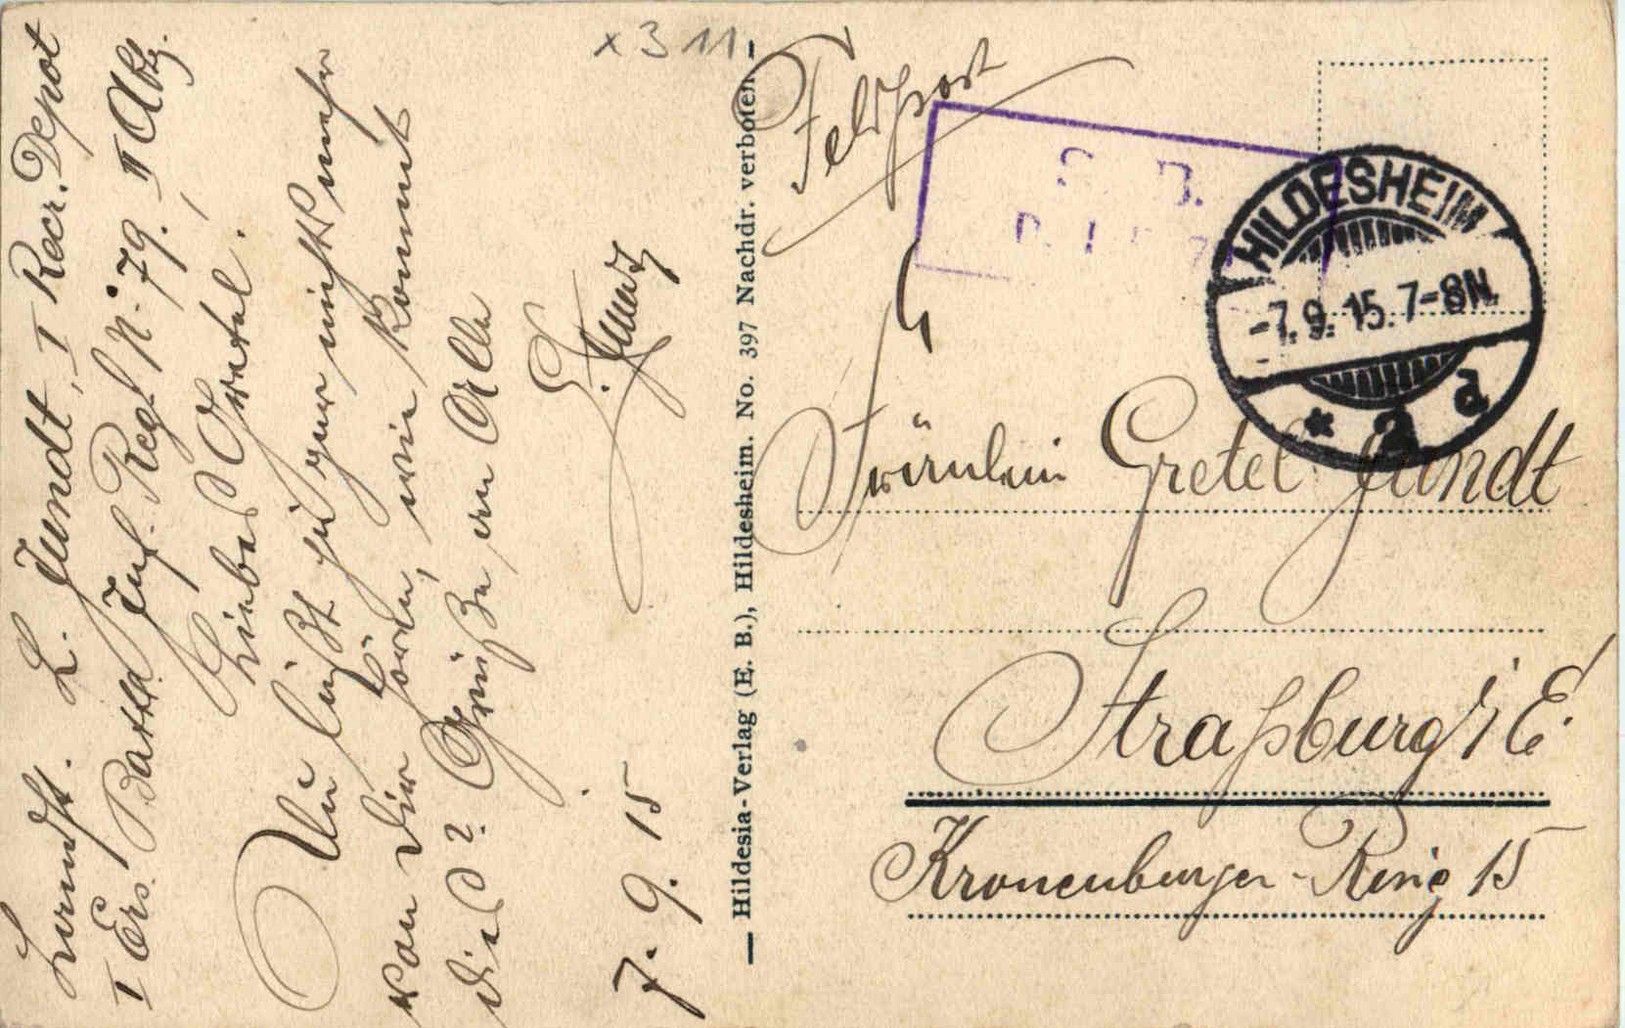 Landst. L. Jundt, I Recr. Depot
I Ers. Batta. Inf. Regt N. 79. II Abtg.
Liebes Gretel.
Du läßt ja gar nichts mehr
von Dir hören, wie kommt
dies? Grüße an Alle
L. Jundt
7. 9. 15
x 311
— Hildesia-Verlag (E. B.), Hildesheim. No. 397 Nachdr. verboten —
Feldpost
S. B.
HILDESHEIM
-7.9.15.7-8N.
* 2 a
Fräulein Gretel Jundt
Straßburg i/E.
Kronenburger-Ring 15